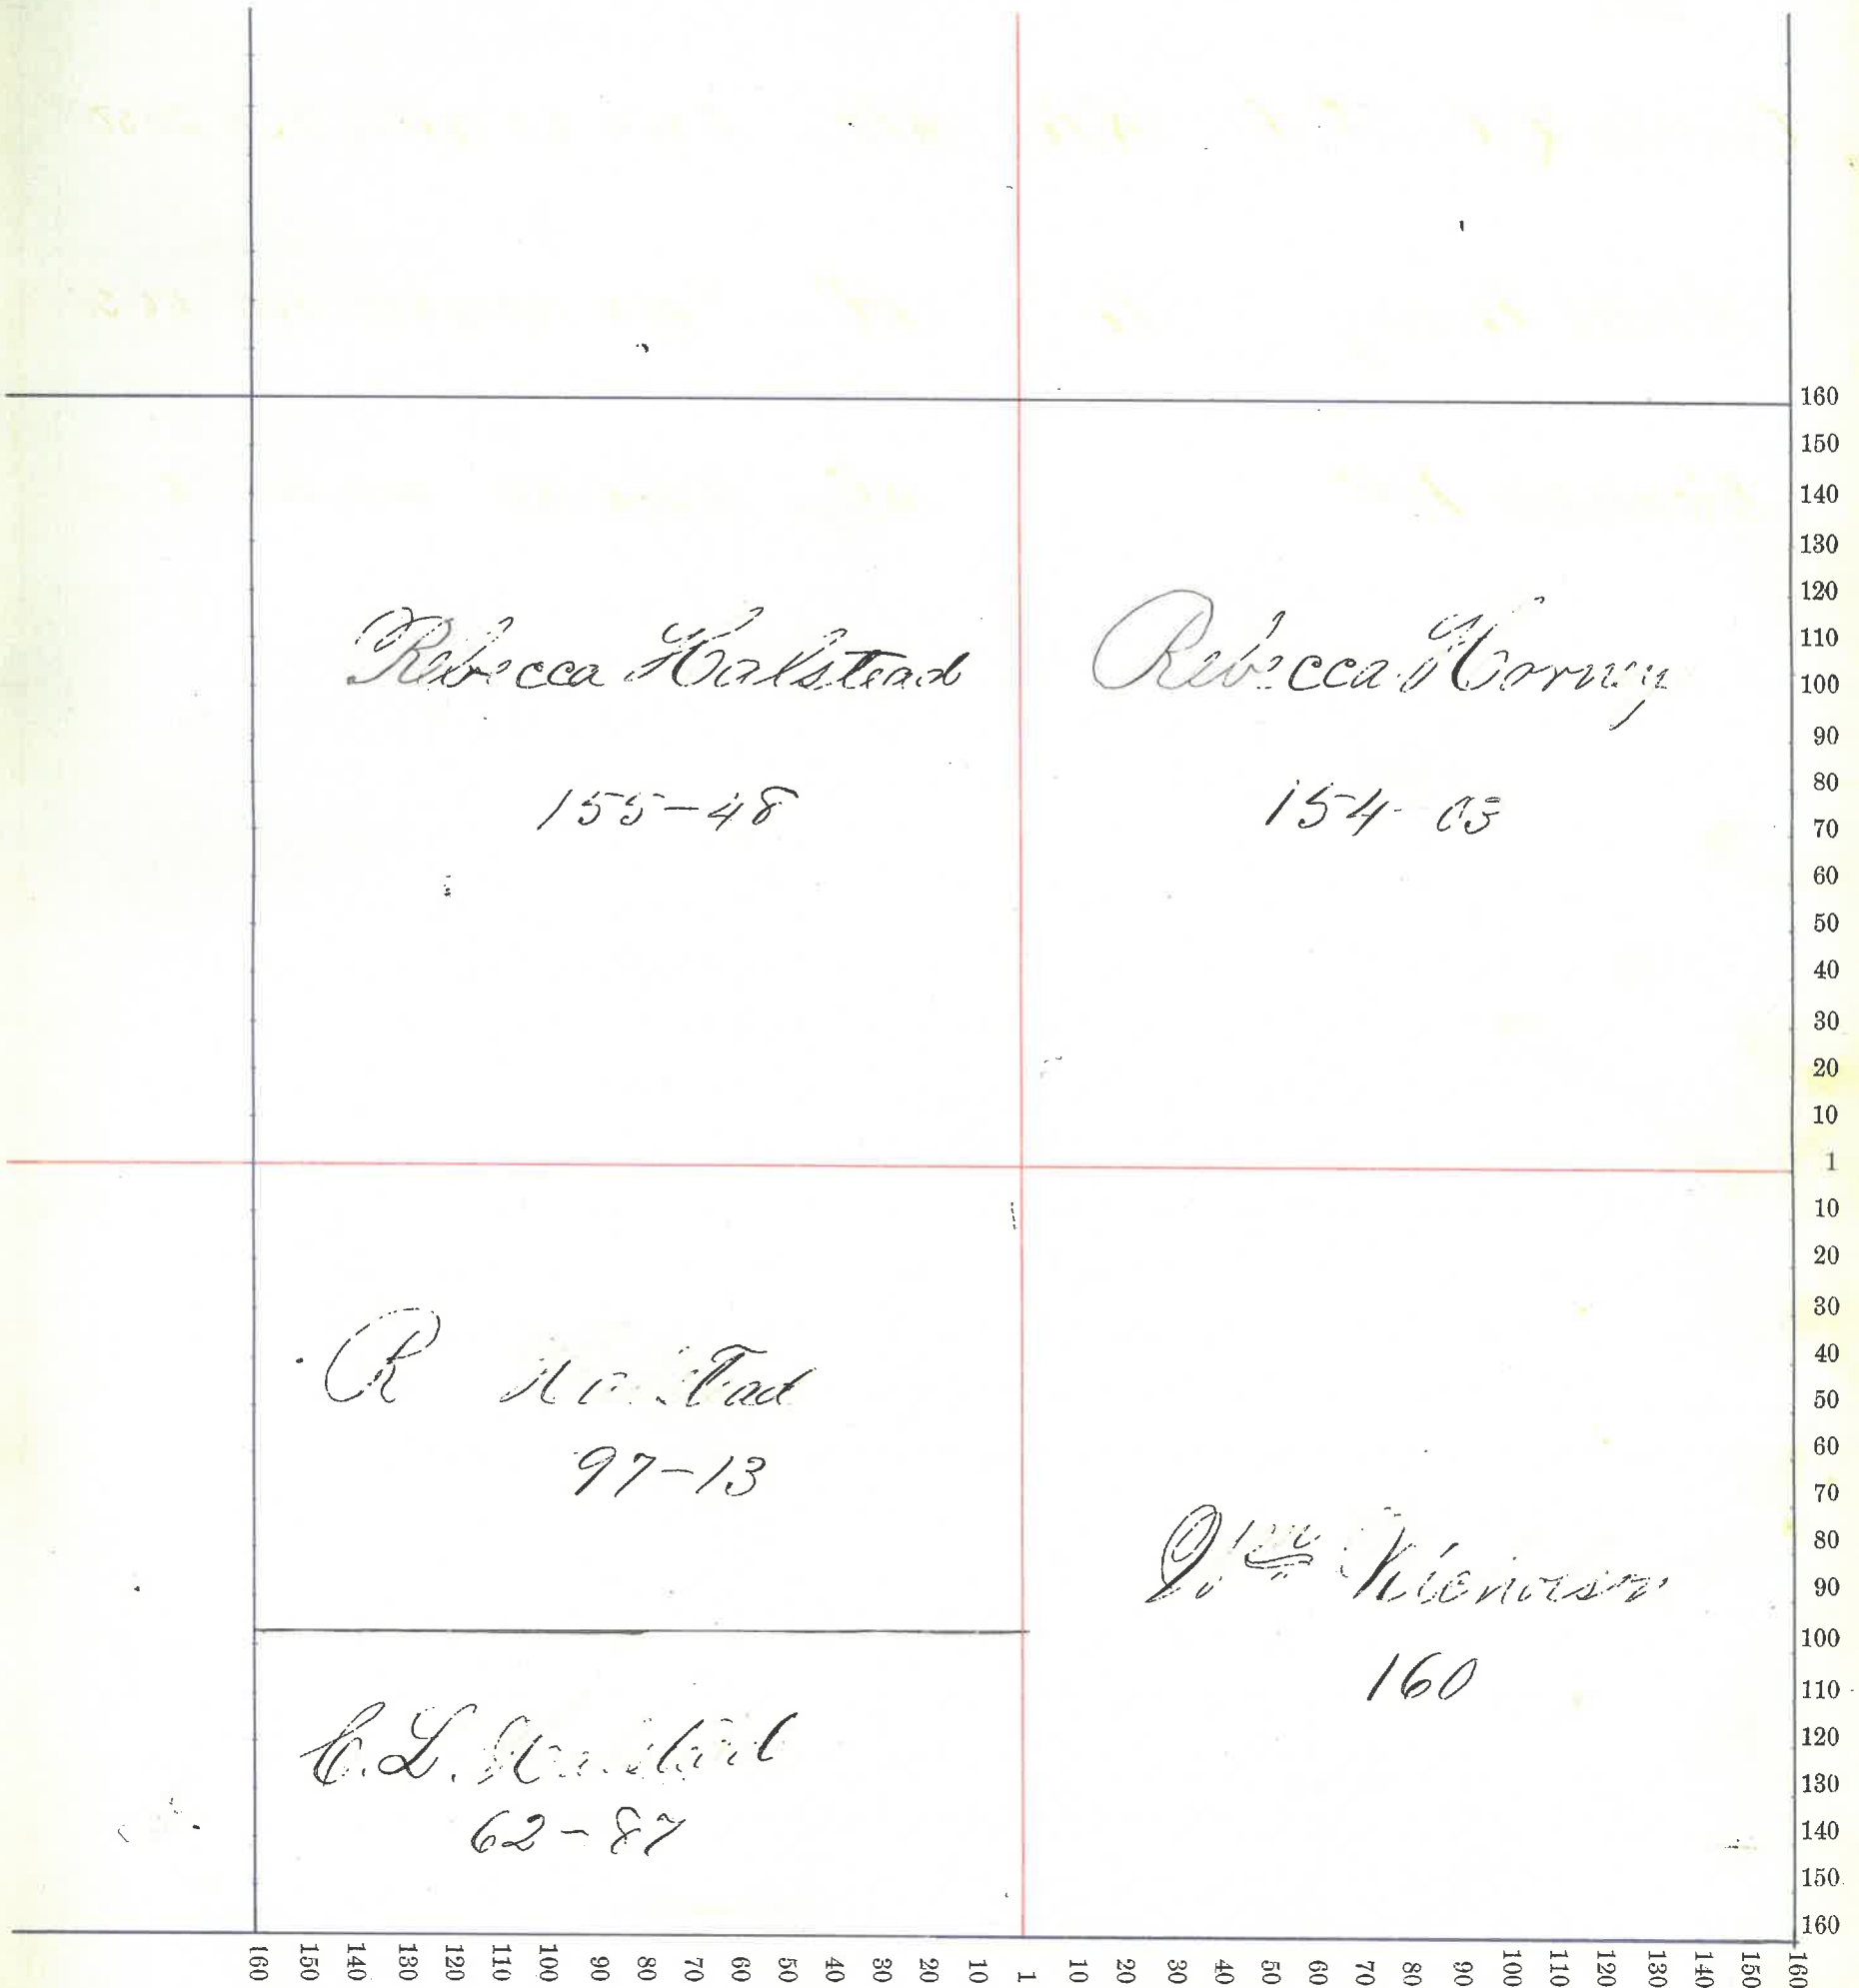 Rebecca Halstead
155-48
Rebecca Horney
154-03
R
97-13
C. L.
62-87
160
160
150
140
130
120
110
100
90
80
70
60
50
40
30
20
10
1
10
20
30
40
50
60
70
80
90
100
110
120
130
140
150
160
160 150 140 130 120 110 100 90 80 70 60 50 40 30 20 10 1 10 20 30 40 50 60 70 80 90 100 110 120 130 140 150 160